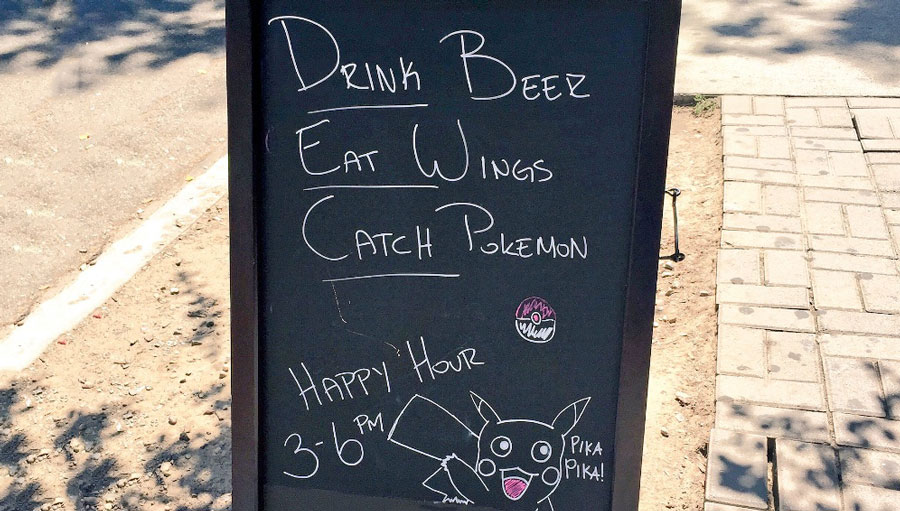 Drink Beer
Eat Wings
Catch Pokemon
Happy Hour
3-6 PM
Pika
Pika!